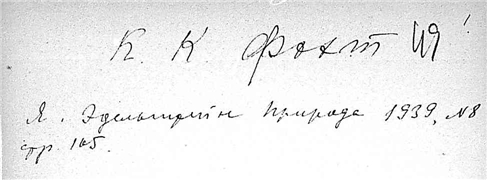 К. К. Фохт
Я. Эдельштейн Природа 1939, №8
стр. 105.